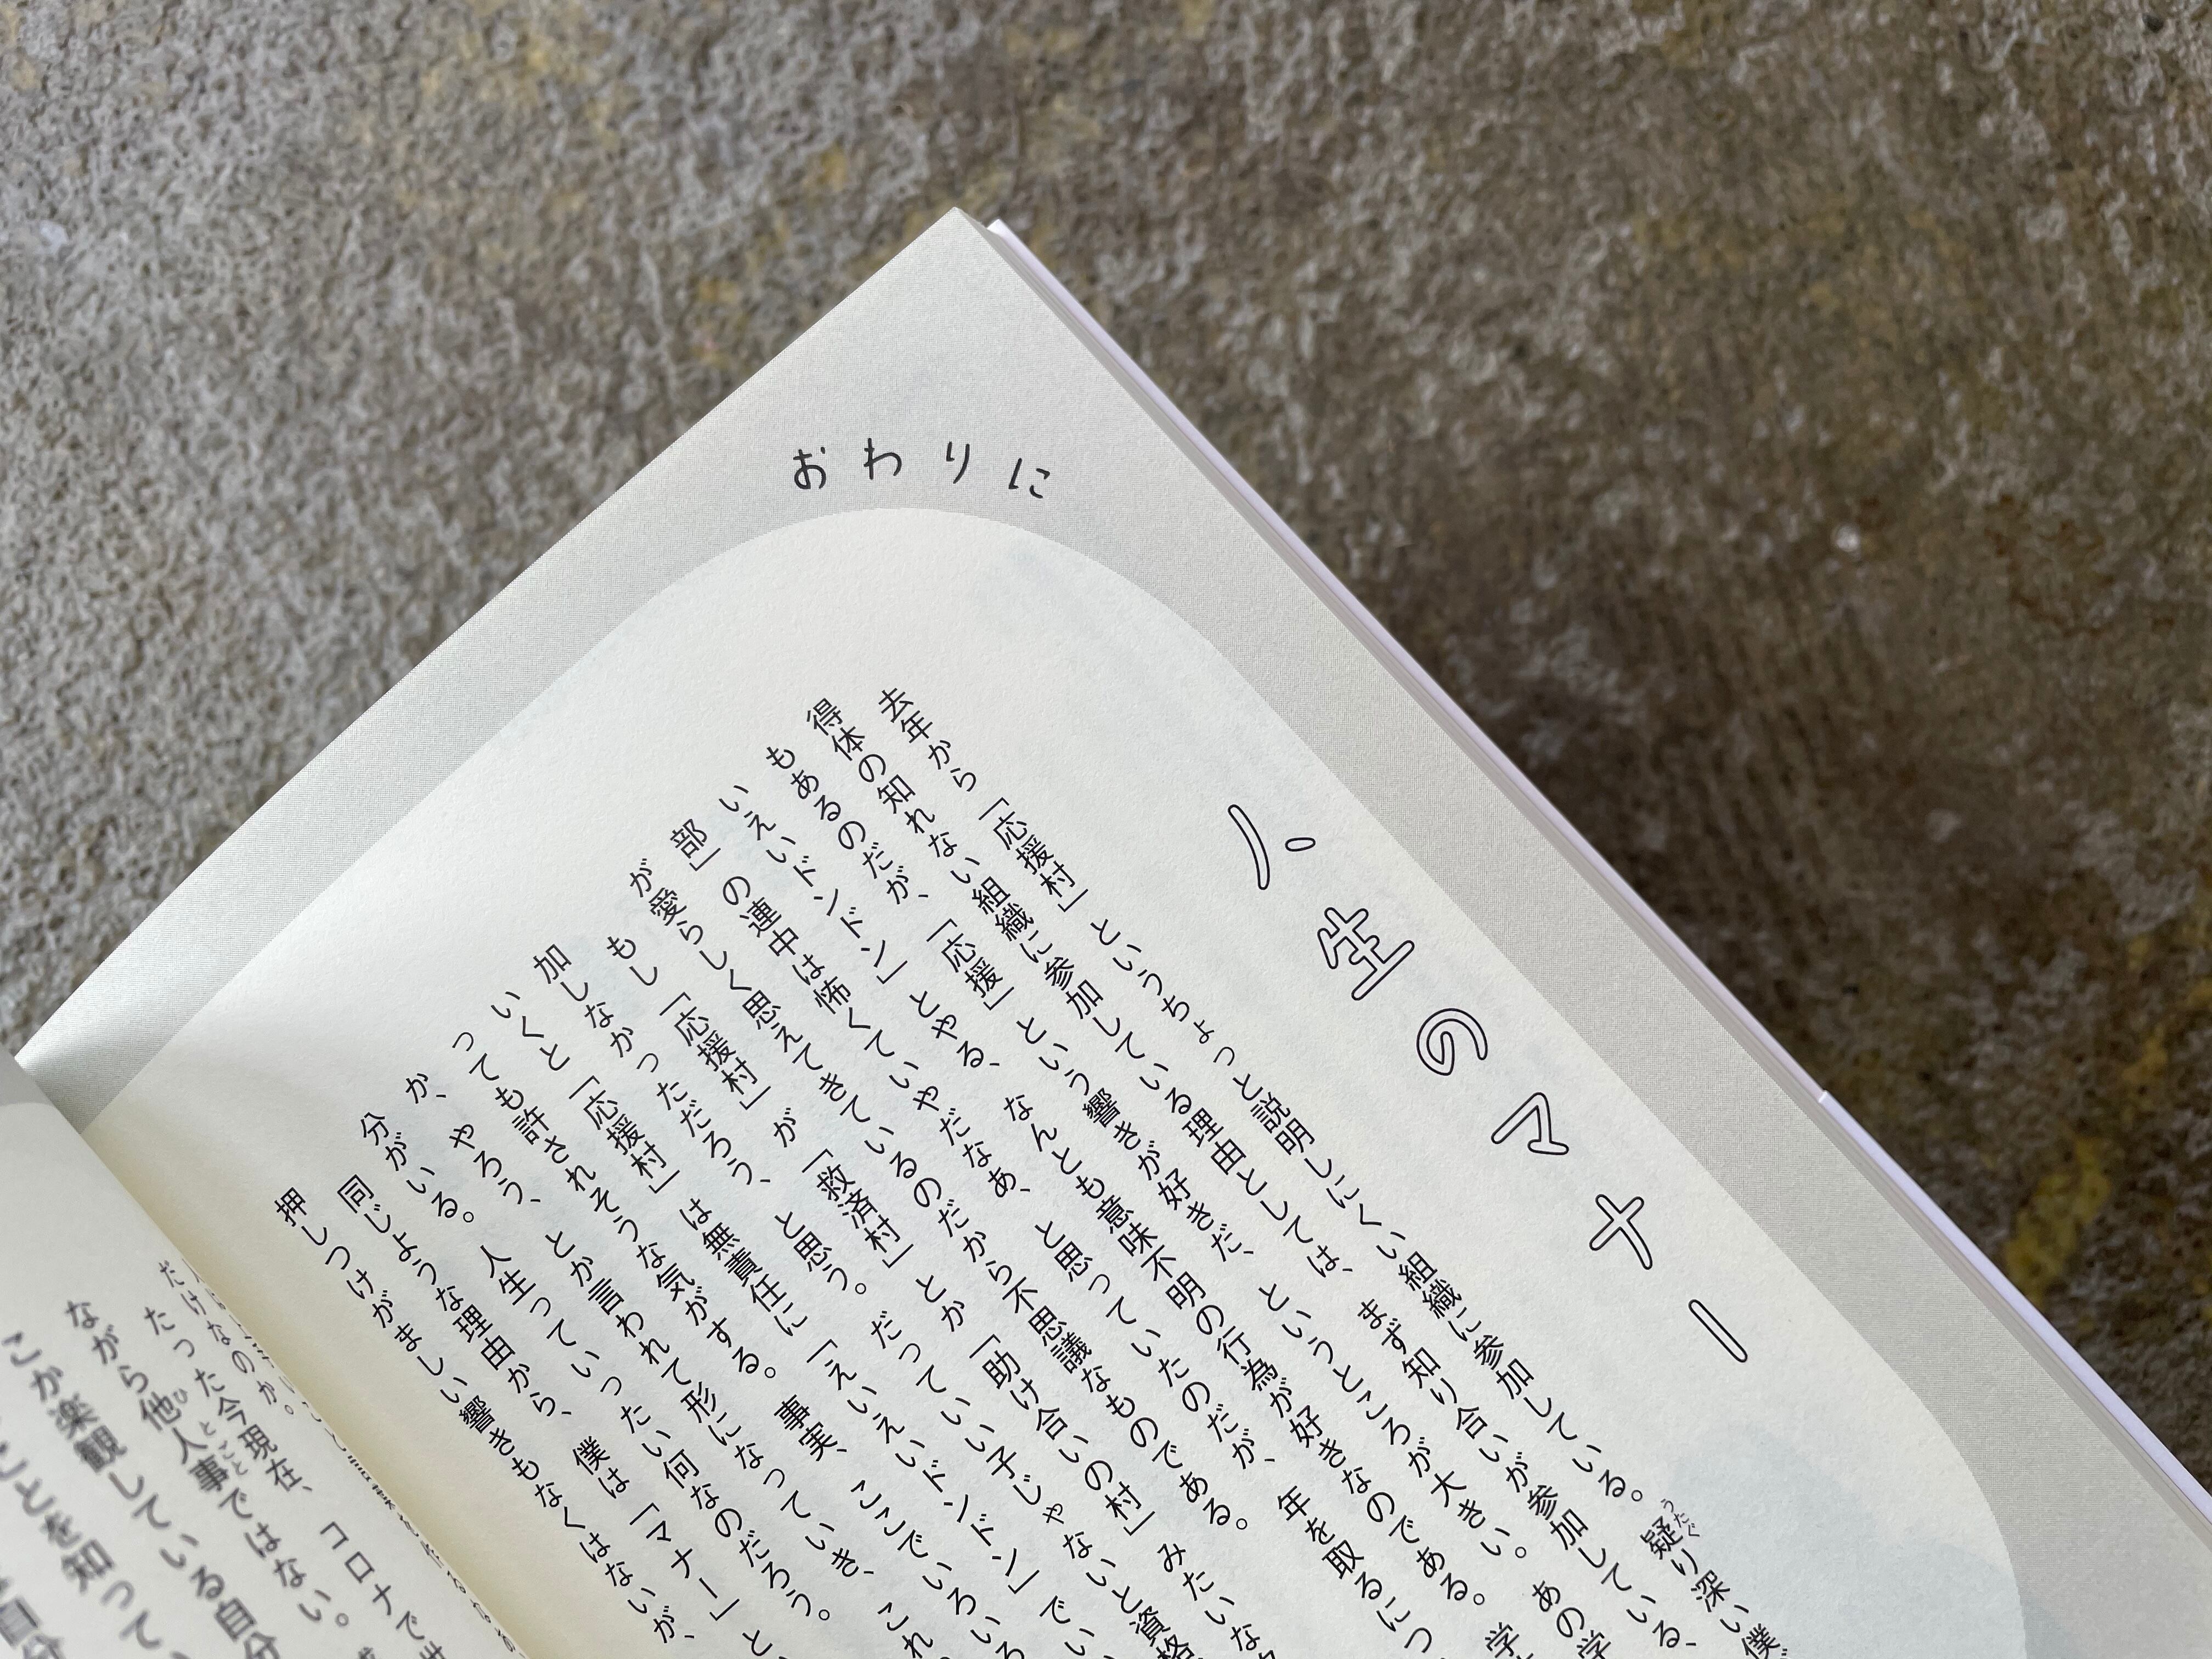 おわりに
人生のマナー
去年から「応援村」というちょっと説明しにくい組織に参加している。疑り深い僕
うたぐ
得体の知れない組織に参加している理由としては、まず知り合いが参加している、
もあるのだが、「応援」という響きが好きだ、というところが大きい。あの学
いえいドンドン」とやる、なんとも意味不明の行為が好きなのである。学
部」の連中は怖くていやだなあ、と思っていたのだが、年を取るにつ
が愛らしく思えてきているのだから不思議なものである。
もし「応援村」が「救済村」とか「助け合いの村」みたいな
加しなかっただろう、と思う。だっていい子じゃないと資格
いくと「応援村」は無責任に「えいえいドンドン」でい
っても許されそうな気がする。事実、ここでいろいろ
か、やろう、とか言われて形になっていき、これ
分がいる。人生っていったい何なのだろう。
同じような理由から、僕は「マナー」と
押しつけがましい響きもなくはないが、
だけなのか。
たった今現在、コロナで
ながら他人事ではない。
ひとごと
こか楽観している自分
ことを知って、
自分